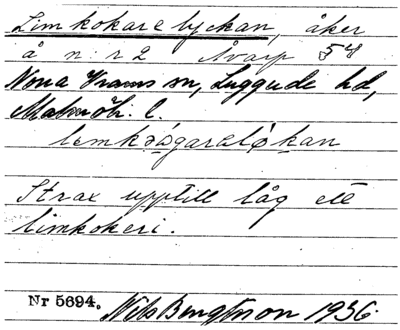 Limkokarelyckan, åker
å n:r 2 Åvarp 54
Norra Vrams sn, Luggude hd,
Malmöh. l.
Strax upptill låg ett
limkokeri.
Nr 5694. Nils Bengtsson 1936.